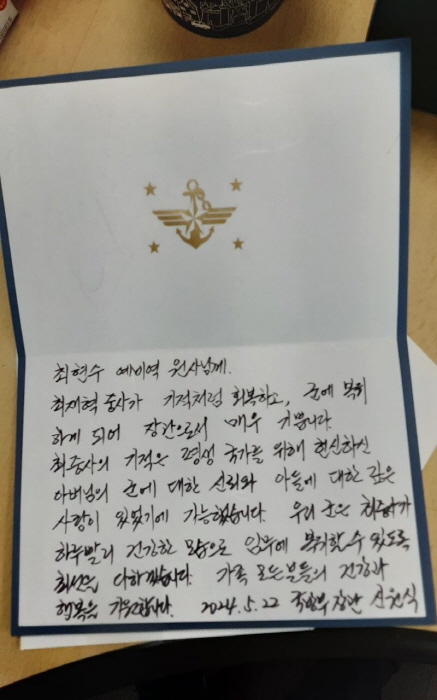 최현수 예비역 원사님께.
최재혁 중사가 기적처럼 회복하고, 군에 복귀
하게 되어 장관으로서 매우 기쁩니다.
최중사의 기적은 평생 국가를 위해 헌신하신
아버님의 군에 대한 신뢰와 아들에 대한 깊은
사랑이 있었기에 가능했습니다. 우리 군은 최중사가
하루빨리 건강한 몸으로 임무에 복귀할 수 있도록
최선을 다하겠습니다. 가족 모든분들의 건강과
행복을 기원합니다. 2024.5.22 국방부장관 신원식